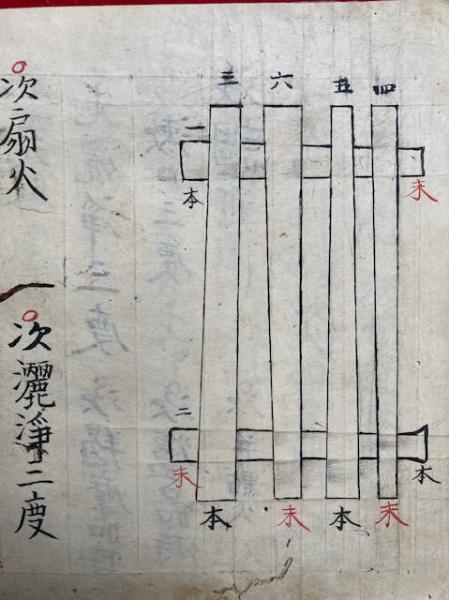 三 六 五 四
二
本
末
二
末
本
本 末 本 末
○次扇火
○次灑淨三度